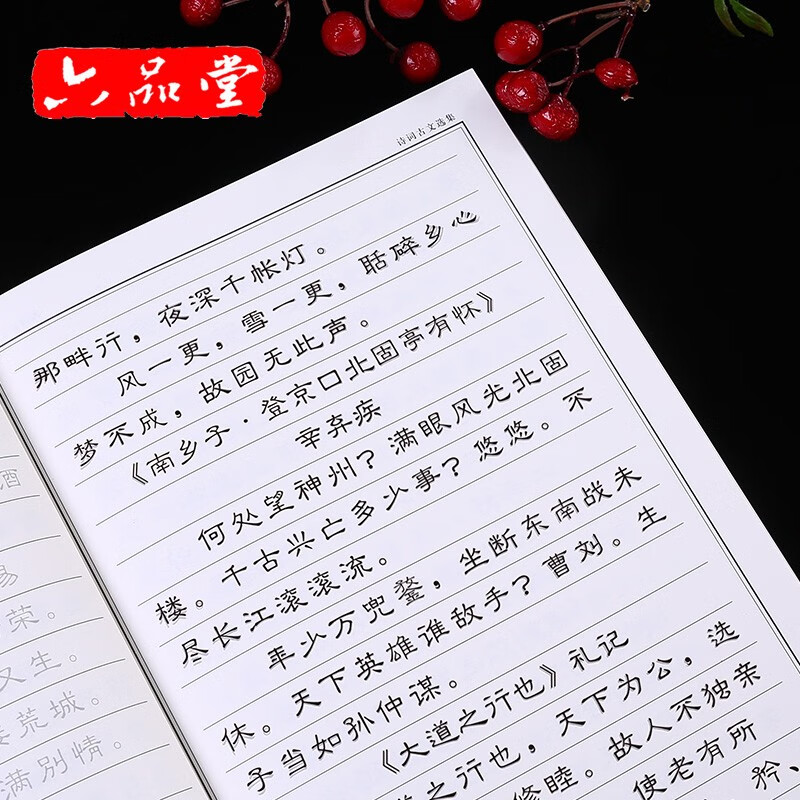 六品堂
诗词古文选集
那畔行，夜深千帐灯。
风一更，雪一更，聒碎乡心
梦不成，故园无此声。
《南乡子·登京口北固亭有怀》
辛弃疾
何处望神州？满眼风光北固
楼。千古兴亡多少事？悠悠。不
尽长江滚滚流。
年少万兜鍪，坐断东南战未
休。天下英雄谁敌手？曹刘。生
子当如孙仲谋。
《大道之行也》礼记
道之行也，天下为公，选
修睦。故人不独亲
使老有所
矜、
酒
荣。
又生。
荒城。
满别情。